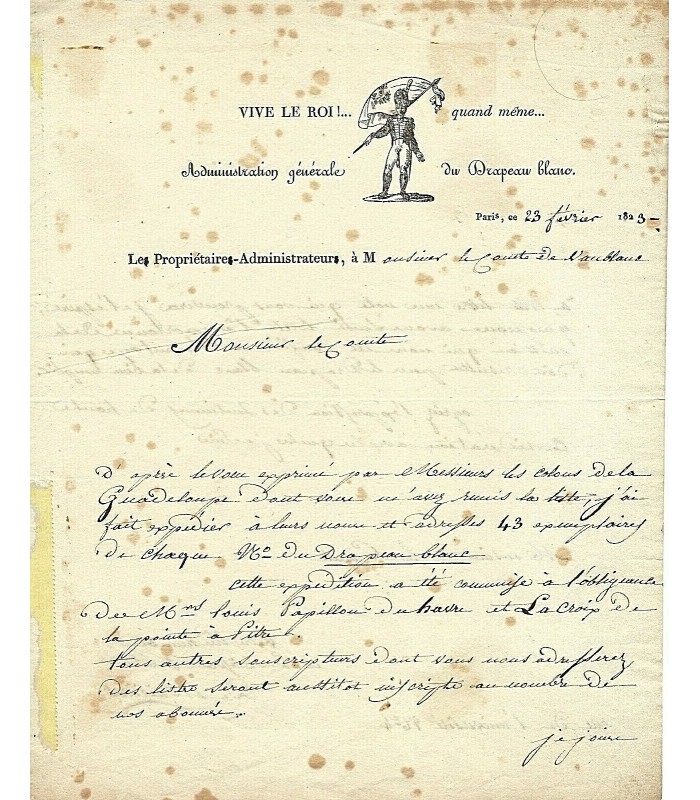 VIVE LE ROI !... quand même...
Administration générale du Drapeau blanc.
Paris, ce 23 février 1823 -
Les Propriétaires-Administrateurs, à Monsieur le Comte de Vaublanc
Monsieur le Comte
D'après le vœu exprimé par Messieurs les colons de la
Guadeloupe dont vous m'avez remis la liste, j'ai
fait expedier à leurs noms et adresses 43 exemplaires
de chaque No du Drapeau blanc
cette expedition a été commise à l'obligeance
de Mrs Louis Papillon du havre et LaCroix de
la pointe à Pitre.
tous autres souscripteurs dont vous nous adresserez
des listes seront aussitot inscrits au nombre de
nos abonnés.
je joins